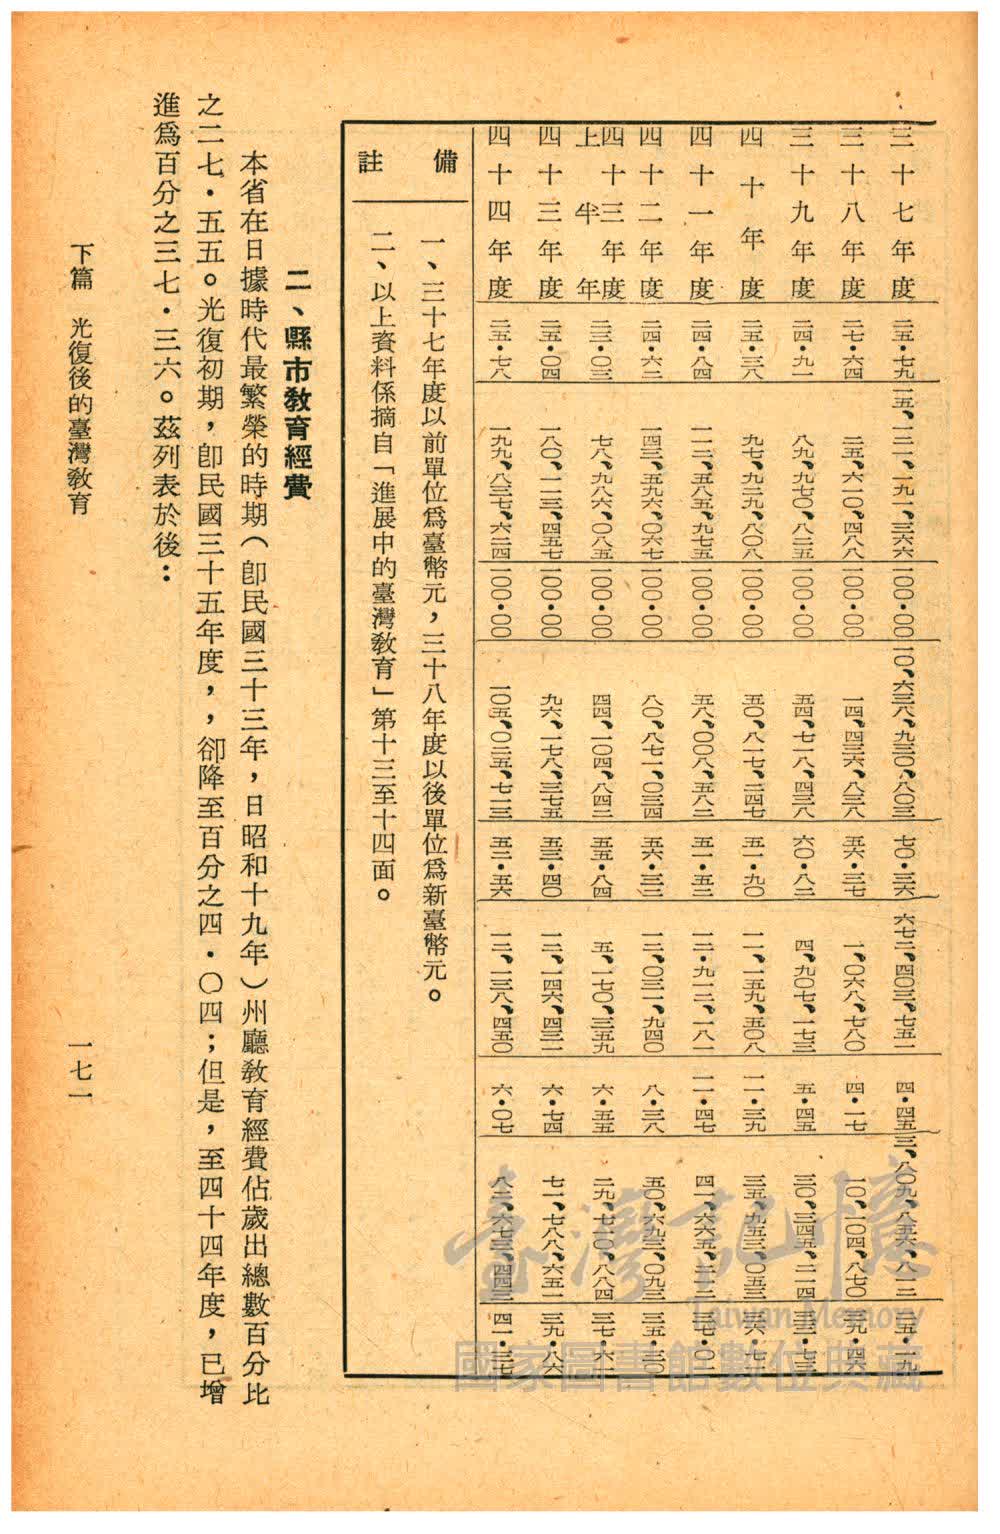 三十七年度 二五・七九 一五、一二一、一九一、三六六 一〇〇・〇〇 一〇、六三八、九三〇、八〇三 七〇・三六 六七二、四〇三、七五一 四・四五 三、八〇九、八五六、八一二 二五・一九
三十八年度 二七・六四 二五、六一〇、四八八 一〇〇・〇〇 一四、四三六、八三八 五六・三七 一、〇六八、七八〇 四・一七 一〇、一〇四、八七〇 三九・四六
三十九年度 二四・九一 八九、九七〇、八二五 一〇〇・〇〇 五四、七一八、四三八 六〇・八二 四、九〇七、一七三 五・四五 三〇、三四五、二一四 三三・七三
四十年度 二五・三八 九七、九二九、八〇八 一〇〇・〇〇 五〇、八一七、二四七 五一・九〇 一一、一五九、五〇八 一一・三九 三五、九五三、〇五三 三六・七一
四十一年度 二四・八四 一一二、五八五、九七五 一〇〇・〇〇 五八、〇〇八、五八二 五一・五二 一二・九一二、一八一 一一・四七 四一、六六五、二一二 三七・〇一
四十二年度 二四・六二 一四三、五九六、〇六七 一〇〇・〇〇 八〇、八七一、〇三四 五六・三二 一二、〇三一、九四〇 八・三八 五〇、六九三、〇九三 三五・三〇
四十三年度上半年 二三・〇三 七八、九八六、〇八五 一〇〇・〇〇 四四、一〇四、八四二 五五・八四 五、一七〇、三五九 六・五五 二九、七一〇、八八四 三七・六一
四十三年度 二五・〇四 一八〇、一一三、四五七 一〇〇・〇〇 九六、一七八、三七五 五三・四〇 一二、一四六、四三一 六・七四 七一、七八八、六五一 三九・八六
四十四年度 二五・七八 一九九、八三七、六二四 一〇〇・〇〇 一〇五、〇二五、七一三 五二・五六 一二、一三八、四五〇 六・〇七 八二、六七三、四四三 四一・三七
備註
一、三十七年度以前單位爲臺幣元，三十八年度以後單位爲新臺幣元。
二、以上資料係摘自「進展中的臺灣教育」第十三至十四面。
二、縣市教育經費
本省在日據時代最繁榮的時期（卽民國三十三年，日昭和十九年）州廳教育經費佔歲出總數百分比
之二七・五五。光復初期，卽民國三十五年度，，卻降至百分之四・〇四；但是，至四十四年度，已增
進爲百分之三七・三六。茲列表於後：
下篇 光復後的臺灣教育
一七一
臺灣記憶
Taiwan Memory
國家圖書館數位典藏